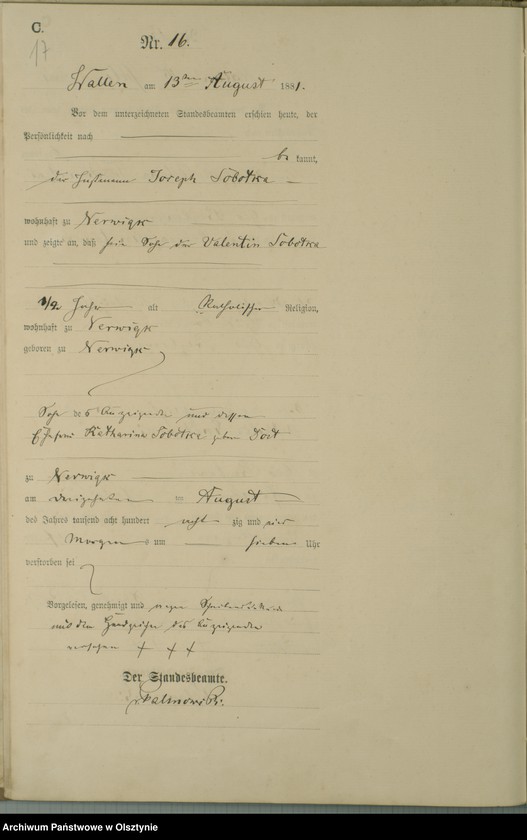 C.
17
Nr. 16.
Wallen am 13ten August 1881.
Vor dem unterzeichneten Standesbeamten erschien heute, der
Persönlichkeit nach
be kannt,
der Joseph Sobotka
wohnhaft zu Nerwigk
und zeigte an, daß sein Sohn der Valentin Sobotka
1/2 Jahr alt Katholischer Religion,
wohnhaft zu Nerwigk
geboren zu Nerwigk
Sohn des Anzeigenden und dessen
Ehefrau Katharina Sobotka geborne
zu Nerwigk
am dreizehnten August
des Jahres tausend acht hundert acht zig und eins
Morgens um sieben Uhr
verstorben sei
Vorgelesen, genehmigt und wegen
mit den Handzeichen des Anzeigenden
versehen + + +
Der Standesbeamte.
Archiwum Państwowe w Olsztynie